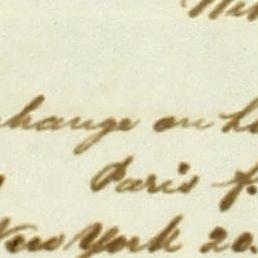 change on
Paris f.
New York 20.